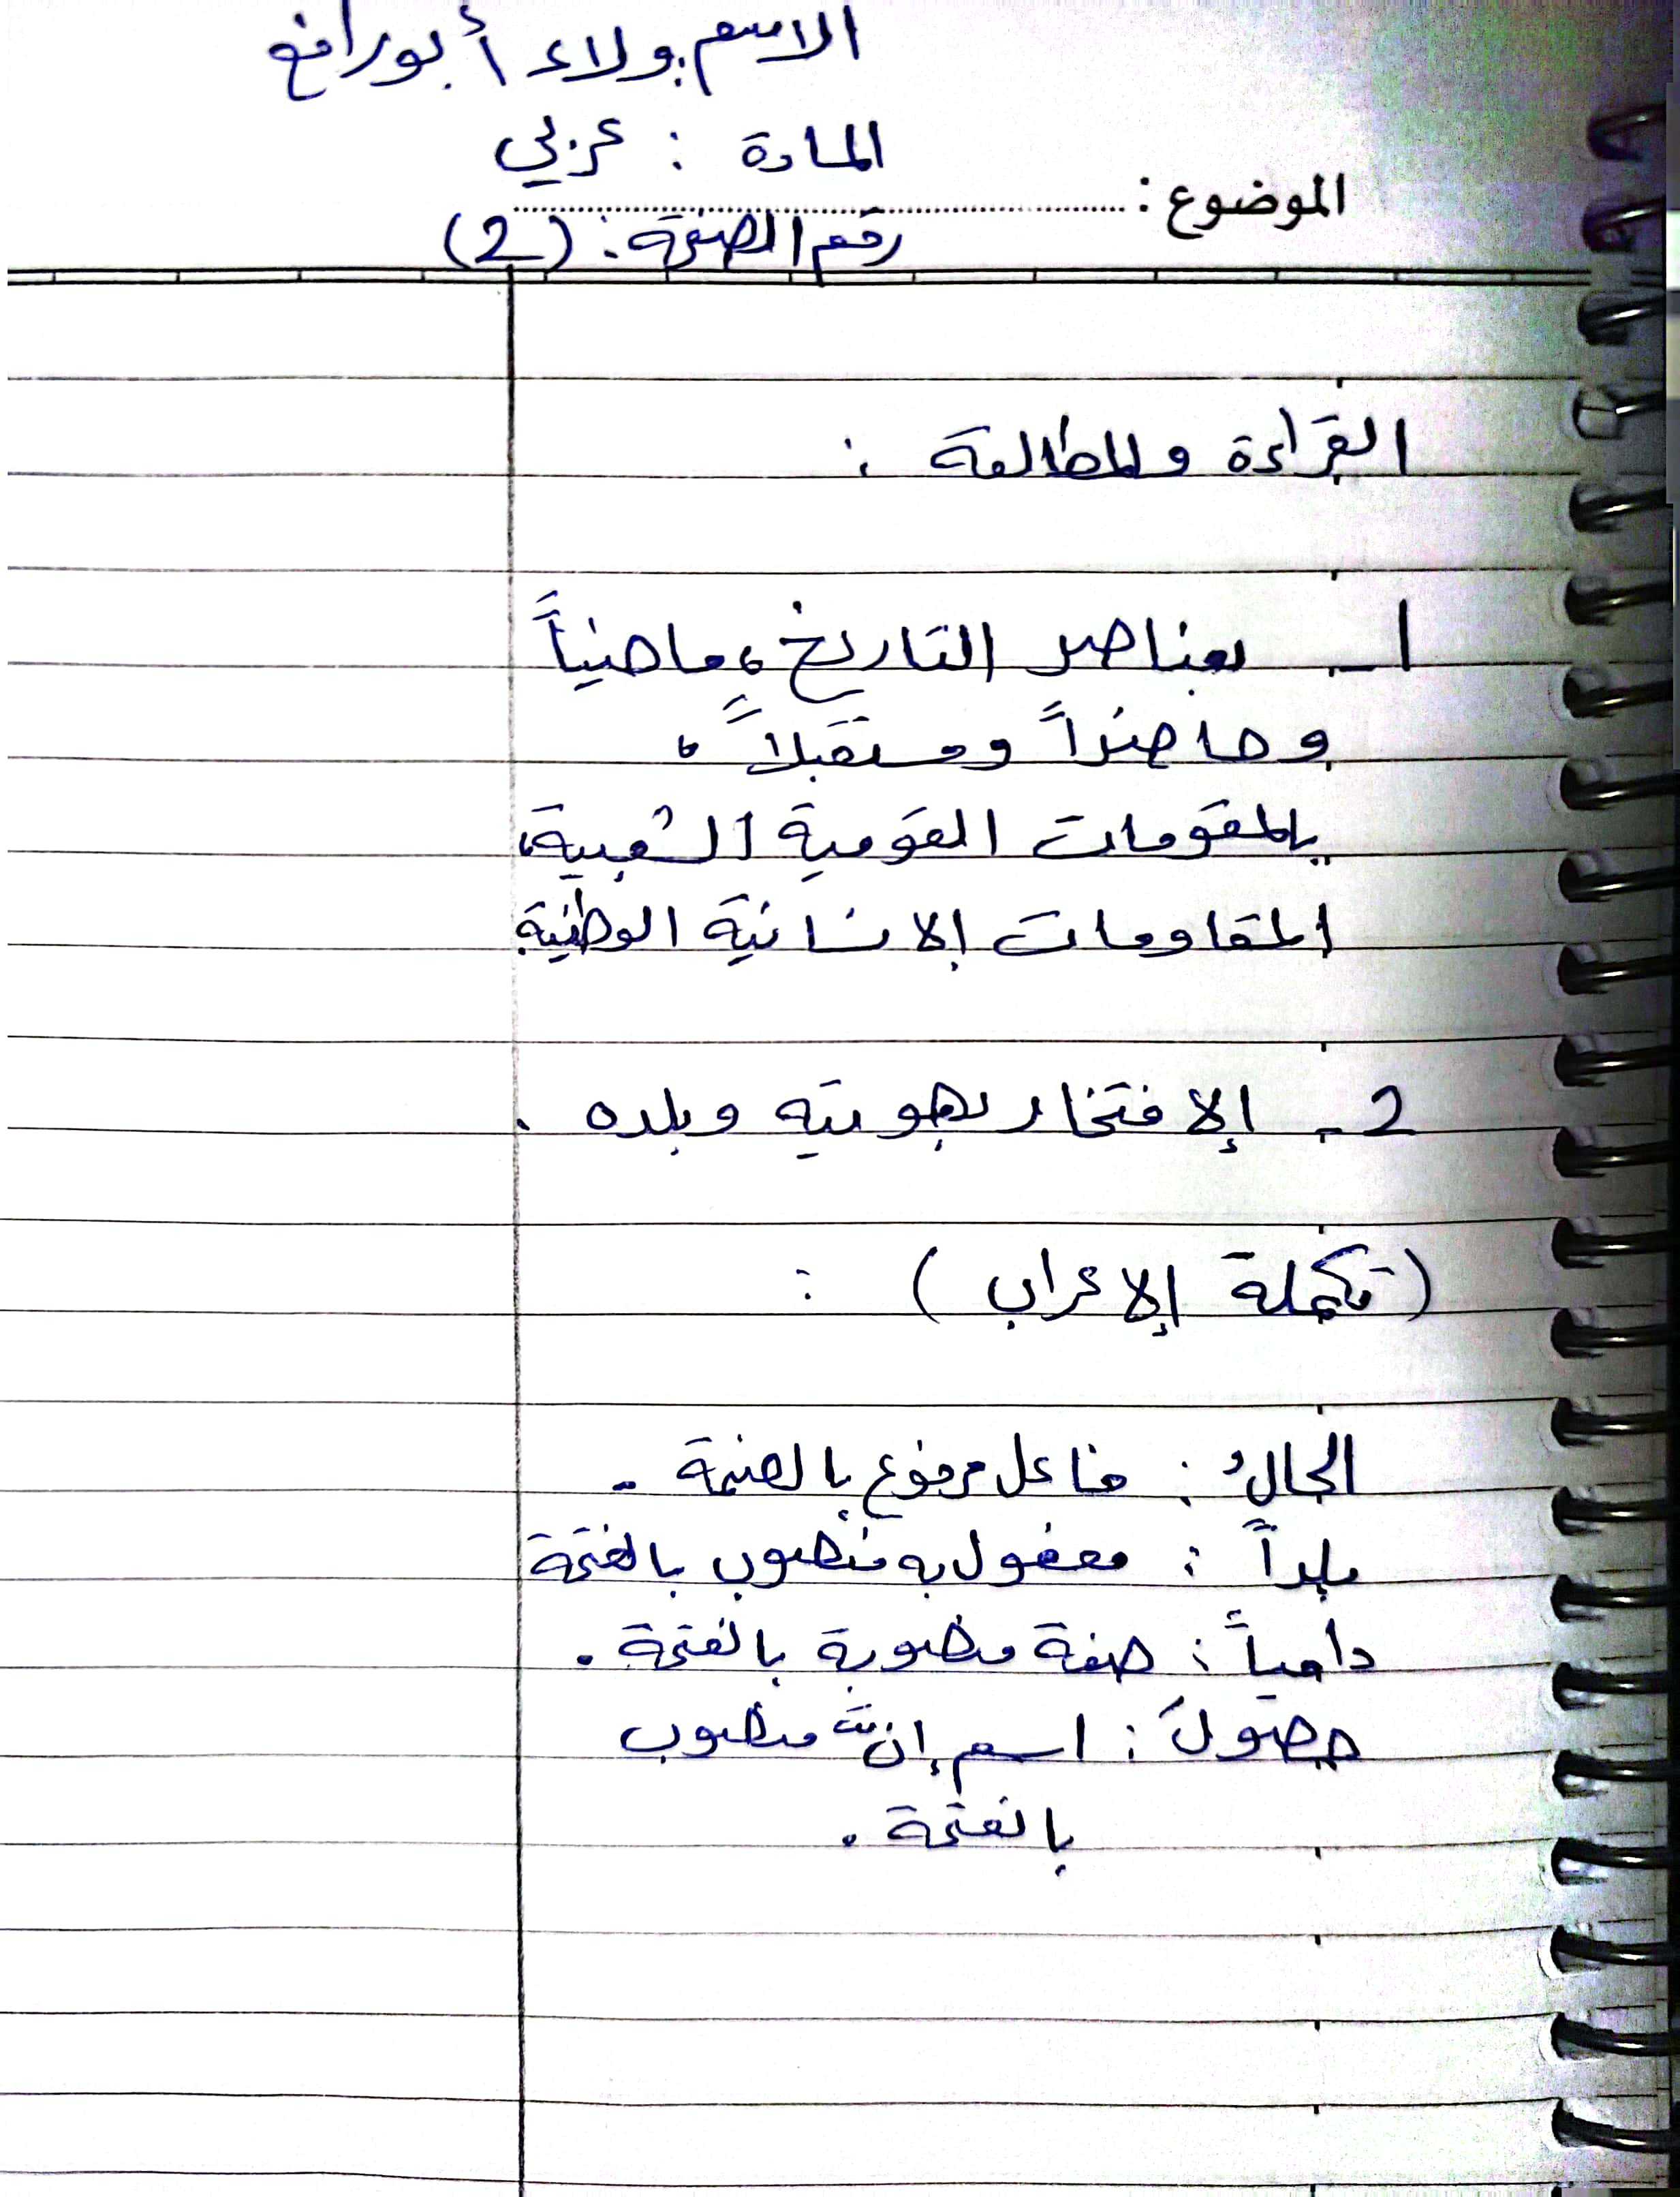 الاسم: ولاء أبورافع
المادة : عربي
الموضوع :
رقم الصفحة: (2)
القراءة والمطالعة :
1- بعناصر التاريخ، ماضياً
وحاضراً ومستقبلاً،
بالمقومات القومية الشعبية،
المقاومات الإنسانية الوطنية
2- الإفتخار بهويته وبلده .
(تكملة الإعراب) :
الجالُ : فاعل مرفوع بالضمة .
بلداً : مفعول به منصوب بالفتحة
دامياً : صفة منصوبة بالفتحة .
حصولَ : اسم إن منصوب
بالفتحة .